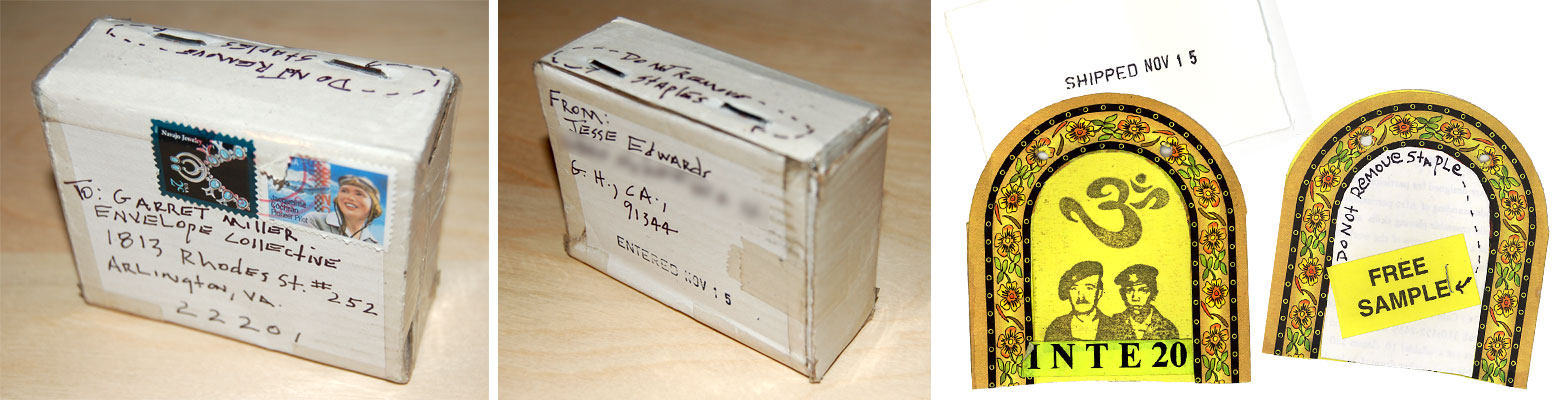 DO NOT REMOVE
STAPLES
Navajo Jewelry
2¢
Jacqueline
Cochran
Pioneer Pilot
TO: GARRET MILLER.
ENVELOPE COLLECTIVE
1813 Rhodes St. #252
ARLINGTON, VA.
22201
DO NOT REMOVE
STAPLES
FROM:
JESSE EDWARDS
G. H., CA.,
91344
ENTERED NOV 15
SHIPPED NOV 15
INTE20
DO NOT REMOVE STAPLE
FREE
SAMPLE